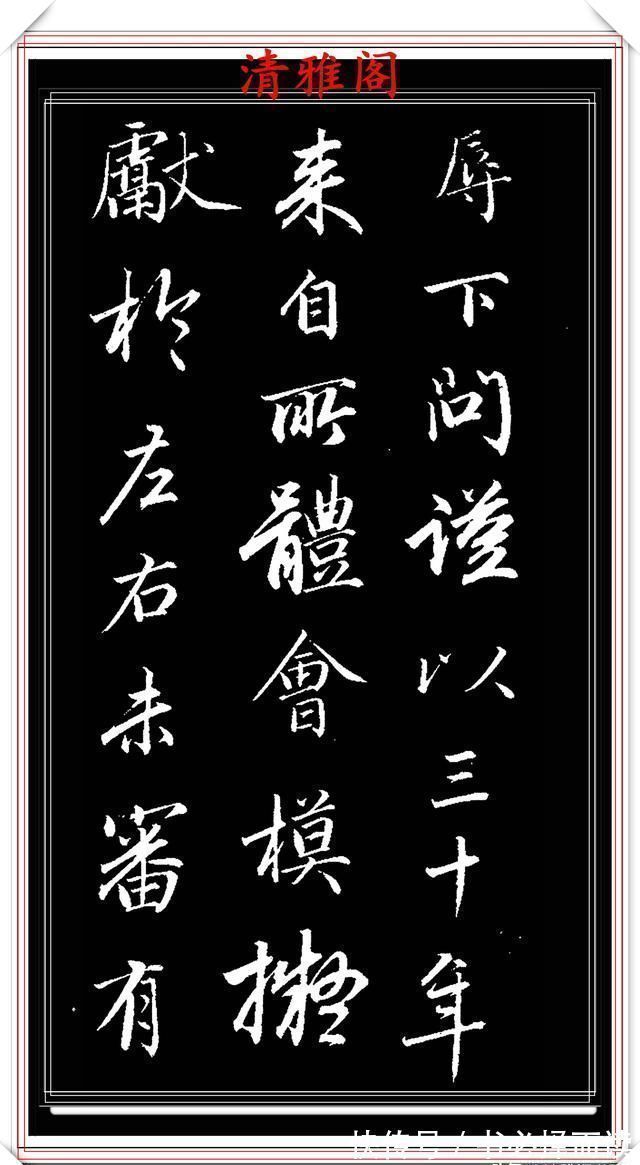 清雅阁
辱下问谨以三十年
来自所體會模擬
獻於左右未審有
快传号 / 书必择而读